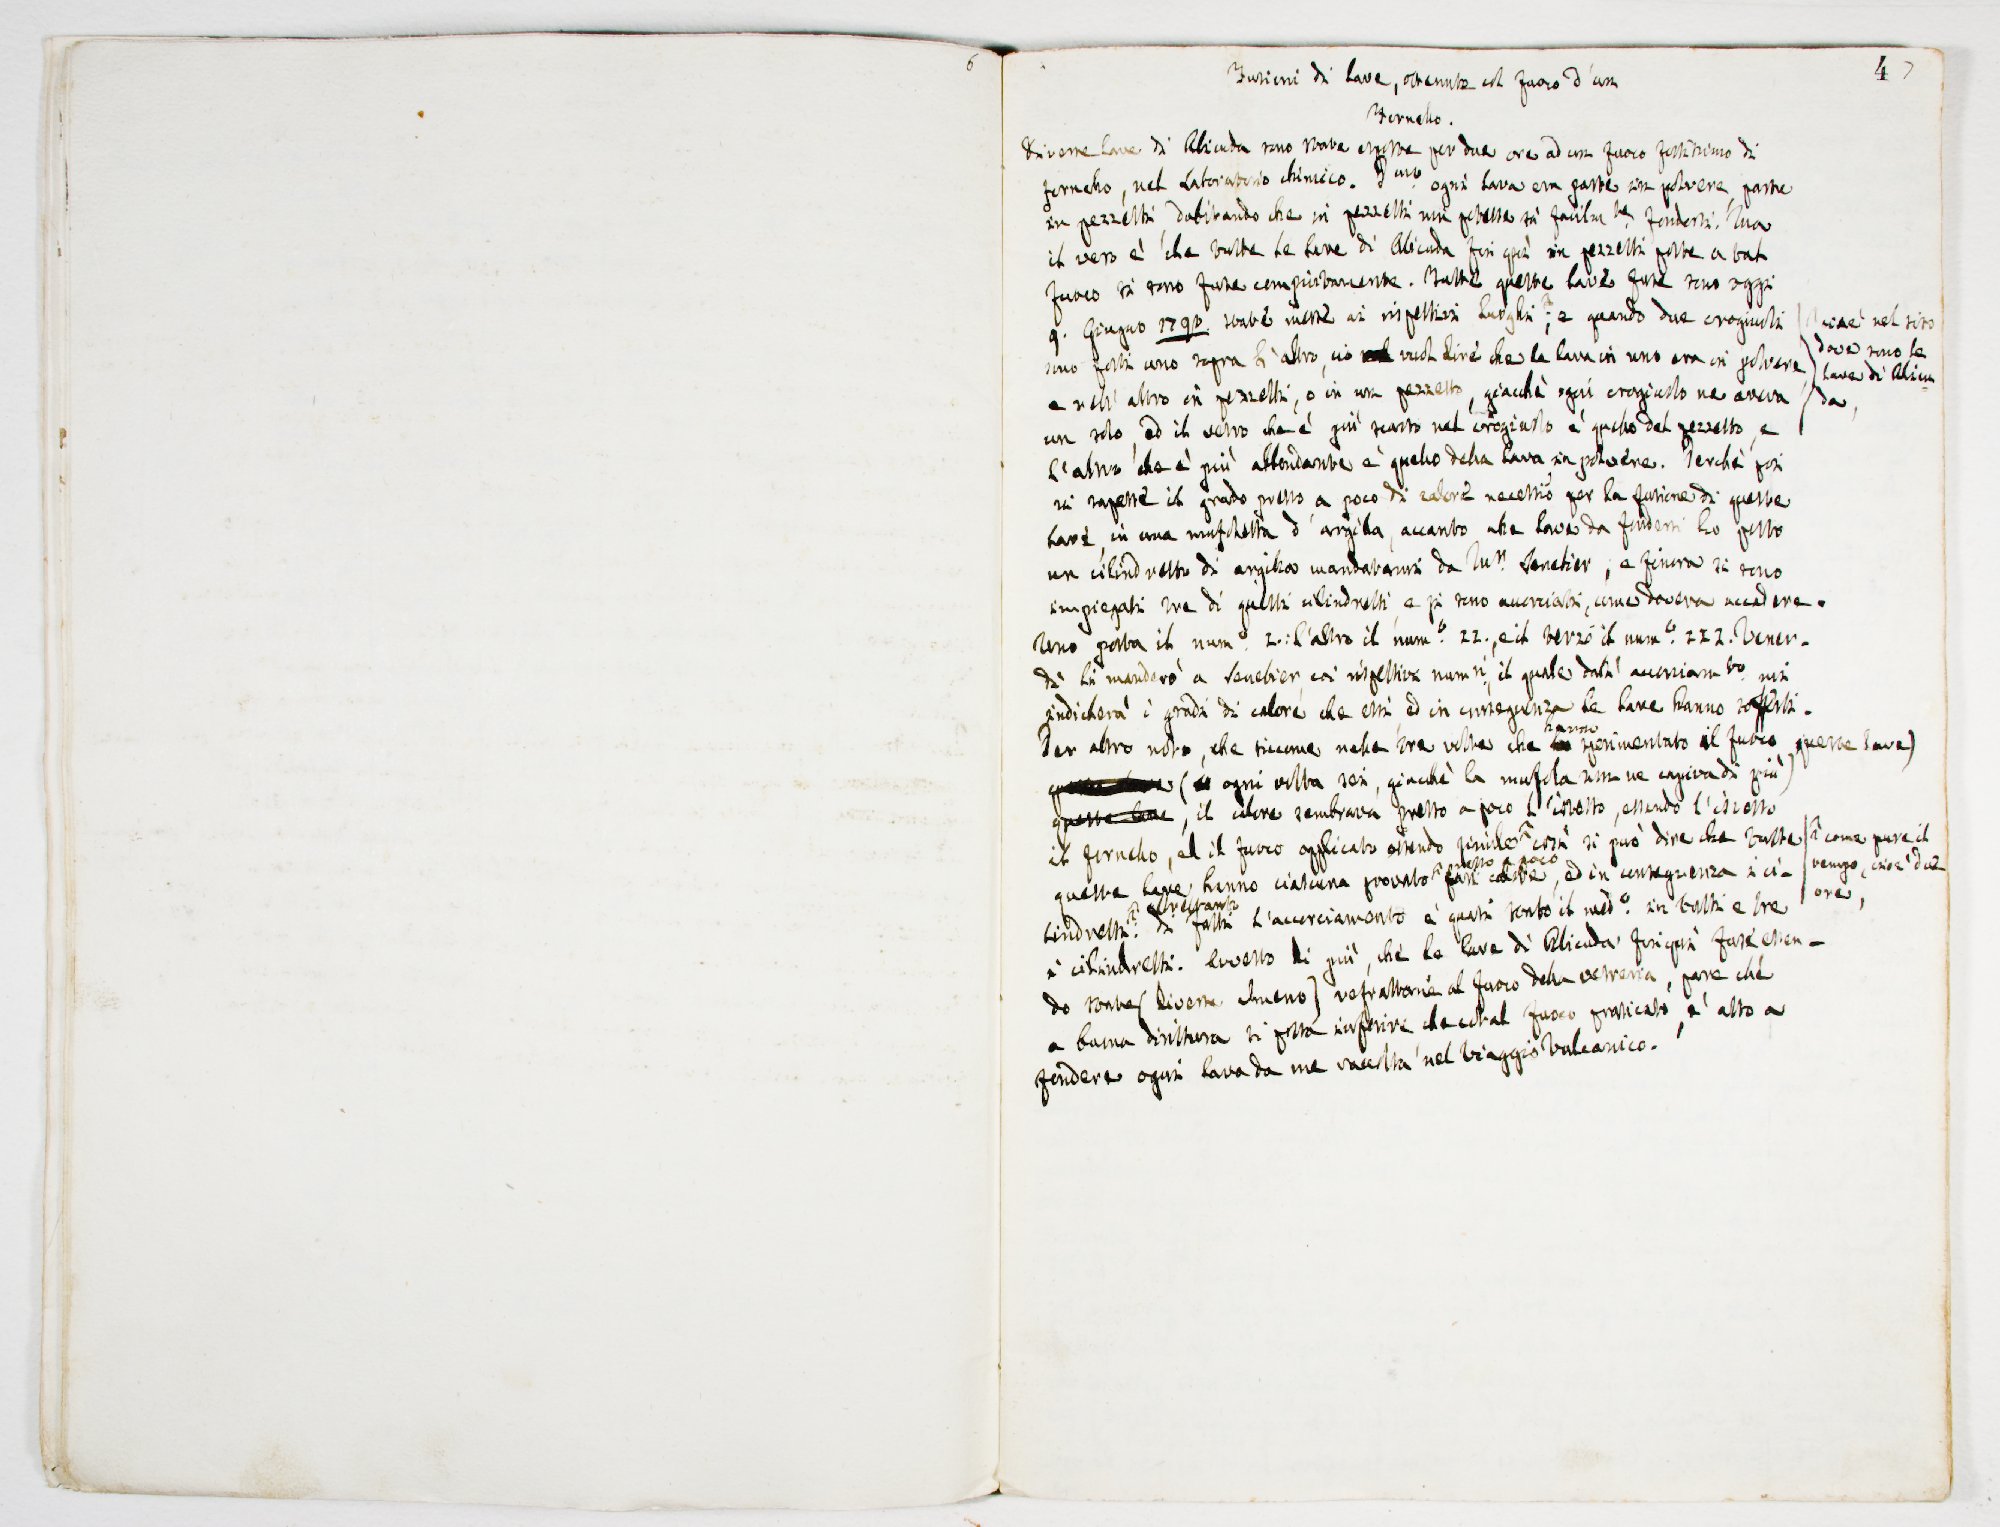 6
4 7
Fusioni di lave, ottenute col fuoco d'un
Fornello.
Diverse lave di Alicuda sono state esposte per due ore ad un fuoco fortissimo di
fornello, nel Laboratorio chimico. ogni lava era parte in polvere, parte
in pezzetti, dubitando che in pezzetti non potesse sì facilmte. fondersi. Ma
il vero è che tutte le lave di Alicuda fin qui in pezzetti poste a tal
fuoco si sono fuse compiutamente. Tutte queste lave fuse sono oggi
9. Giugno state messe ai rispettivi luoghi ^; e quando due crogiuoli
^ cioè nel sito
dove sono le
lave di Alicu-
da,
sono posti uno sopra l'altro, ciò vuol dire che la lava in uno era in polvere,
e nell'altro in pezzetti, o in un pezzetto, giacchè ogni crogiuolo ne aveva
un solo, ed il vetro che è più scarso nel crogiuolo è quello del pezzetto, e
l'altro che è più abbondante è quello della lava in polvere. Perchè poi
si sapesse il grado presso a poco di calore necessio per la fusione di queste
lave, in una muffoletta d'argilla, accanto alle lave da fondersi ho posto
un cilindretto di argilla mandatami da Mr. Senebier; e finora si sono
impiegati tre di questi cilindretti e si sono accorciati, come doveva accadere.
Uno porta il numo. I.: l'altro il numo. II., e il terzo il numo. III. Vener-
dì li manderò a Senebier coi rispettivi numri, il quale dall' accorciamto. mi
indicherà i gradi di calore che essi ed in conseguenza le lave hanno sofferti.
Per altro noto, che siccome nelle tre volte che hanno sperimentato il fuoco queste lave)
queste lave (ogni volta sei, giacchè la muffola non ne capiva di più)
queste lave, il calore sembrava presso a poco l'istesso, essendo l'istesso
il fornello, ed il fuoco applicato essendo simile ^ così si può dire che tutte
^ come pure il
tempo, cioè due
ore,
queste lave hanno ciascuna provato ^ presso a poco pari calore, ed in conseguenza i ci-
lindretti ^ altrettanto. Di fatti l'accorciamento è quasi stato il medo. in tutti e tre
i cilindretti. Avverto di più, che le lave di Alicuda finqui fuse essen-
do state (diverse almeno) refrattarie al fuoco della vetreria, pare che
a buona dirittura si possa inferire che cotal fuoco praticato, è atto a
fondere ogni lava da me raccolta nel viaggio Vulcanico.